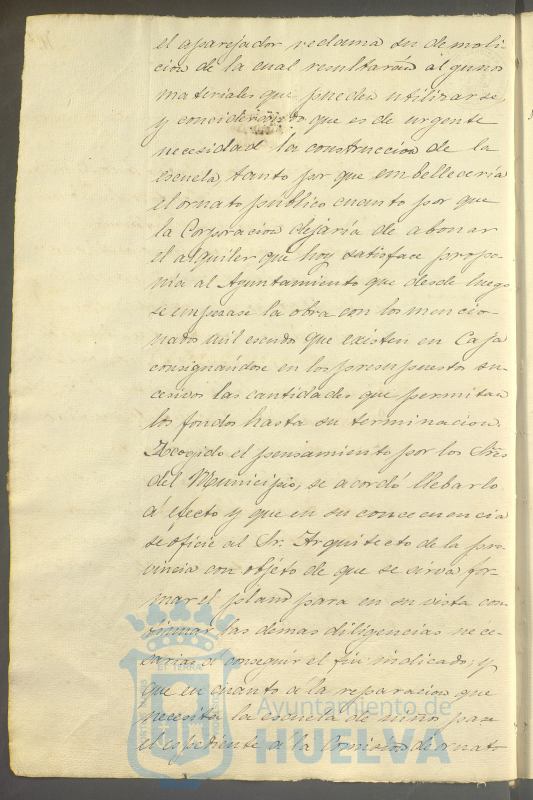 el aparejador reclama su demoli-
cion de la cual resultarán algunos
materiales que pueden utilizarse,
y considerando que es de urgente
necesidad la construccion de la
escuela, tanto por que embelleceria
el ornato publico cuanto por que
la Corporacion dejaría de abonar
el alquiler que hoy satisface propo-
nia al Ayuntamiento que desde luego
se empesase la obra con los mencio-
nados mil escudos que existen en Caja
consignandose en los presupuestos su-
cesivos las cantidades que permitan
los fondos hasta su terminacion.
Acogido el pensamiento por los Sres
del Municipio, se acordó llebarlo
á efecto y que en su concecuencia
se oficie al Sr. Arquitecto de la pro-
vincia con objéto de que se sirva for-
mar el plano para en su vista con-
tinuar las demas diligencias nece-
sarias á conseguir el fin indicado; y
que en cuanto á la reparacion que
necesita la escuela de niños pase
el espediente a la Comision de ornato
Ayuntamiento de
HUELVA